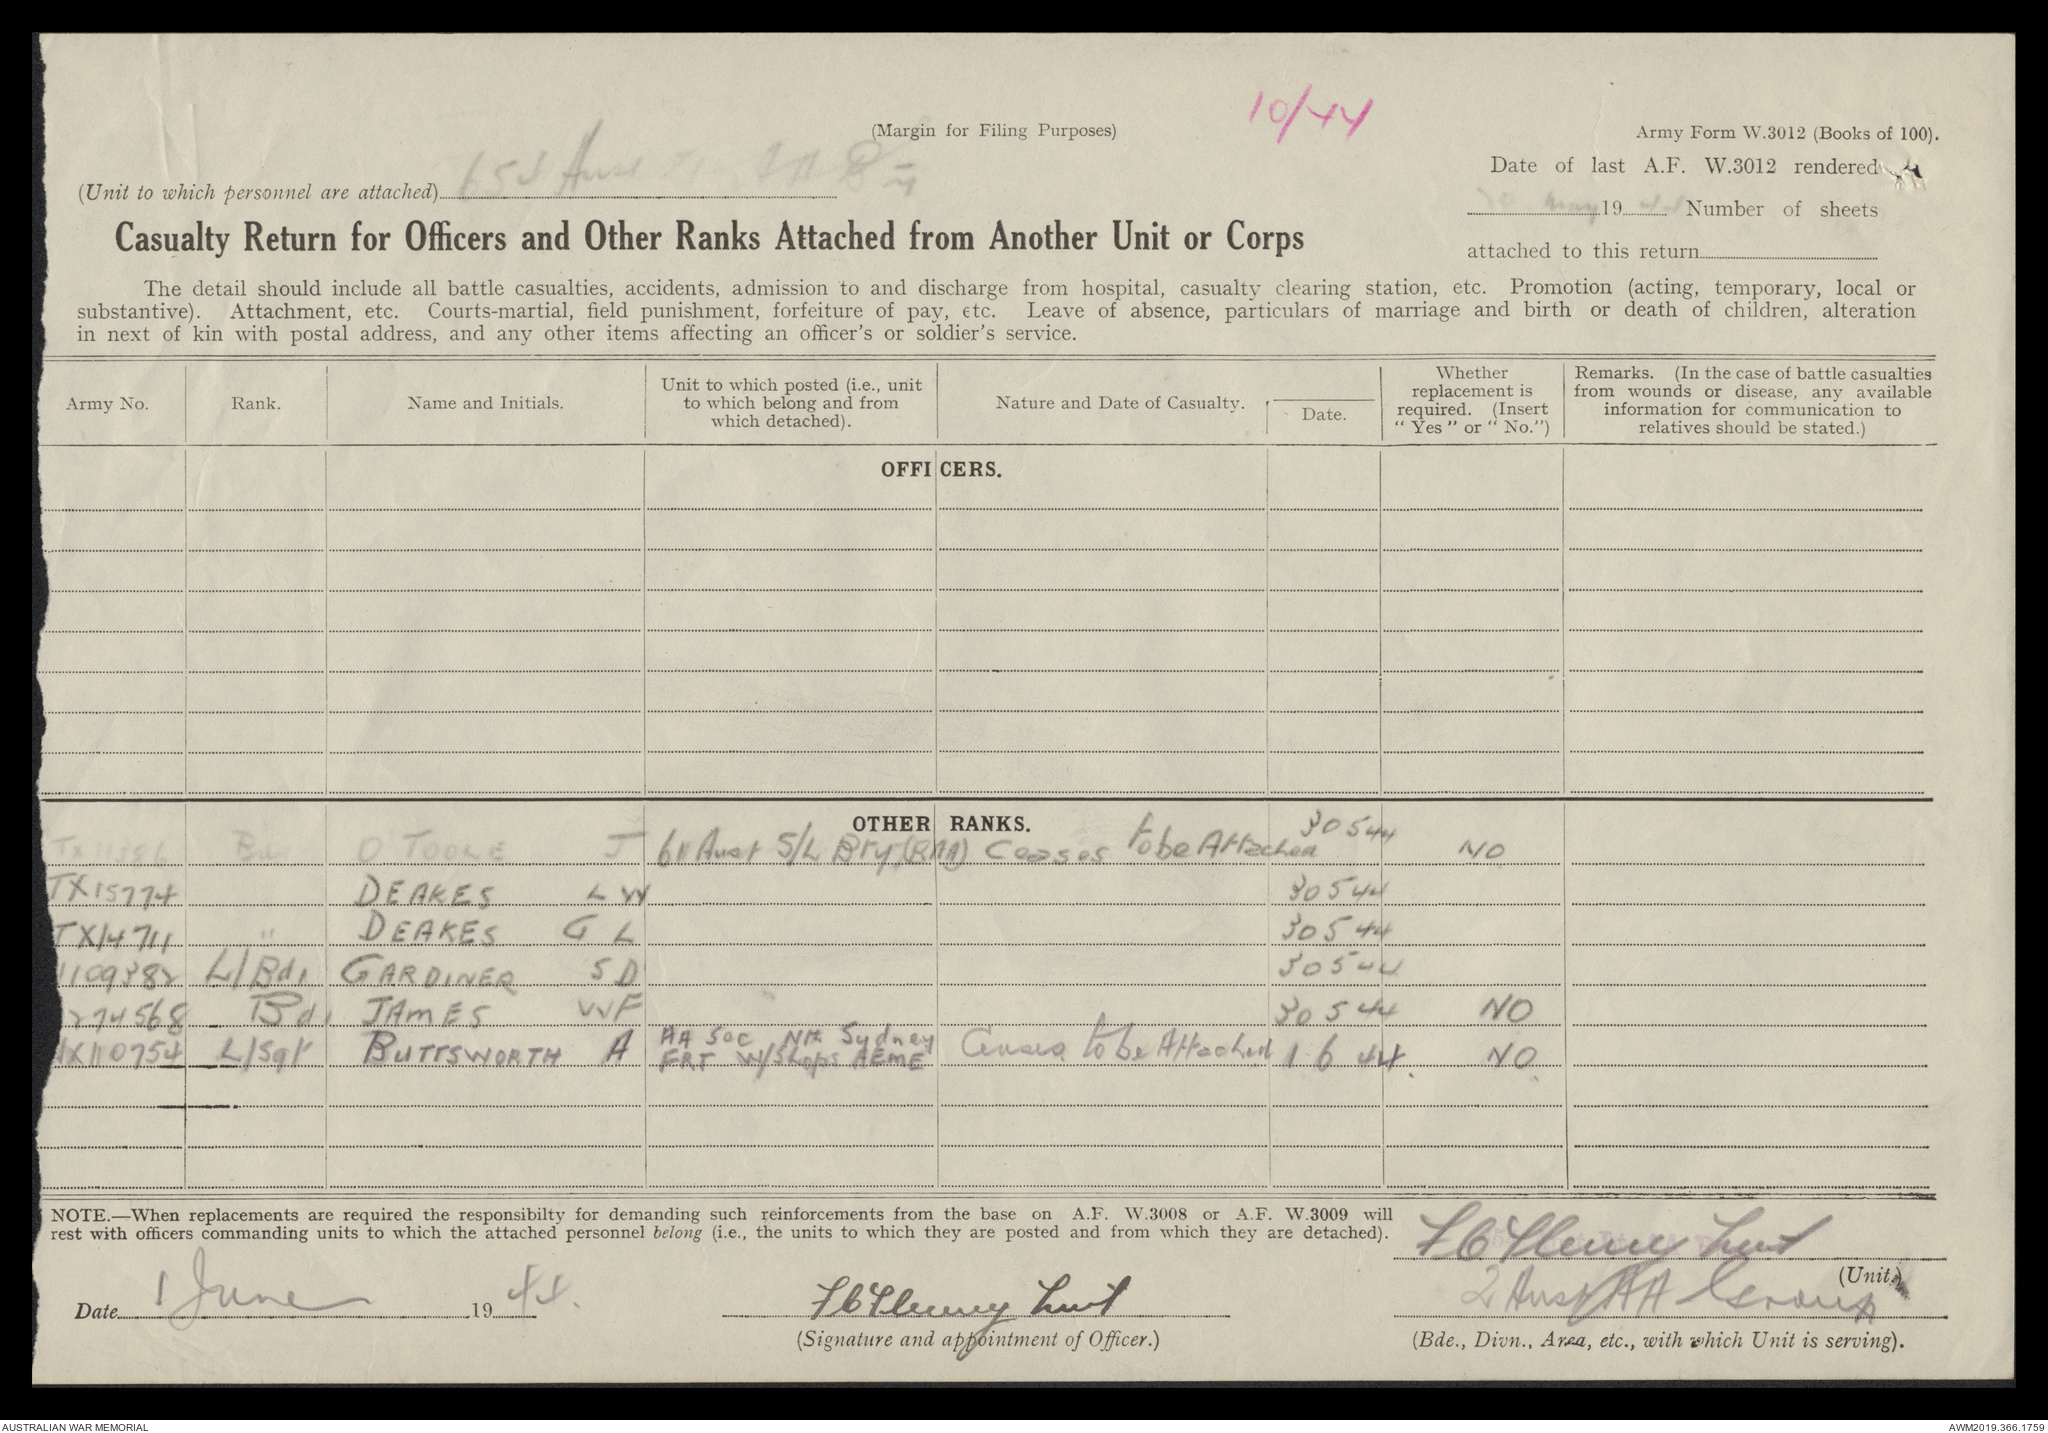 10/44
(Margin for Filing Purposes)
Army Form W.3012 (Books of 100).
Date of last A.F. W.3012 rendered
May 19 44 Number of sheets
attached to this return
(Unit to which personnel are attached) Aust
Casualty Return for Officers and Other Ranks Attached from Another Unit or Corps
The detail should include all battle casualties, accidents, admission to and discharge from hospital, casualty clearing station, etc. Promotion (acting, temporary, local or
substantive). Attachment, etc. Courts-martial, field punishment, forfeiture of pay, etc. Leave of absence, particulars of marriage and birth or death of children, alteration
in next of kin with postal address, and any other items affecting an officer's or soldier's service.
Army No. Rank. Name and Initials. Unit to which posted (i.e., unit to which belong and from which detached). Nature and Date of Casualty. Date. Whether replacement is required. (Insert "Yes" or "No.") Remarks. (In the case of battle casualties from wounds or disease, any available information for communication to relatives should be stated.)
OFFICERS.
OTHER RANKS.
O TOOLE J 61 Aust S/L Bty (RAA) Ceases to be Attached 30 5 44 NO
TX15774 DEAKES L W 30 5 44
TX14711 " DEAKES G L 30 5 44
109382 L/Bdr GARDINER S D 30 5 44
274568 Bdr JAMES W F 30 5 44 NO
X110754 L/Sgt BUTTSWORTH A AA Sec Nth Sydney FRT W/Shops AEME Ceases to be Attached 1 6 44 NO
NOTE.—When replacements are required the responsibilty for demanding such reinforcements from the base on A.F. W.3008 or A.F. W.3009 will
rest with officers commanding units to which the attached personnel belong (i.e., the units to which they are posted and from which they are detached).
Lieut
(Unit.)
Date 1 June 19 44. Lieut 2 Aust AA Group
(Signature and appointment of Officer.) (Bde., Divn., Area, etc., with which Unit is serving).
AUSTRALIAN WAR MEMORIAL AWM2019.366.1759